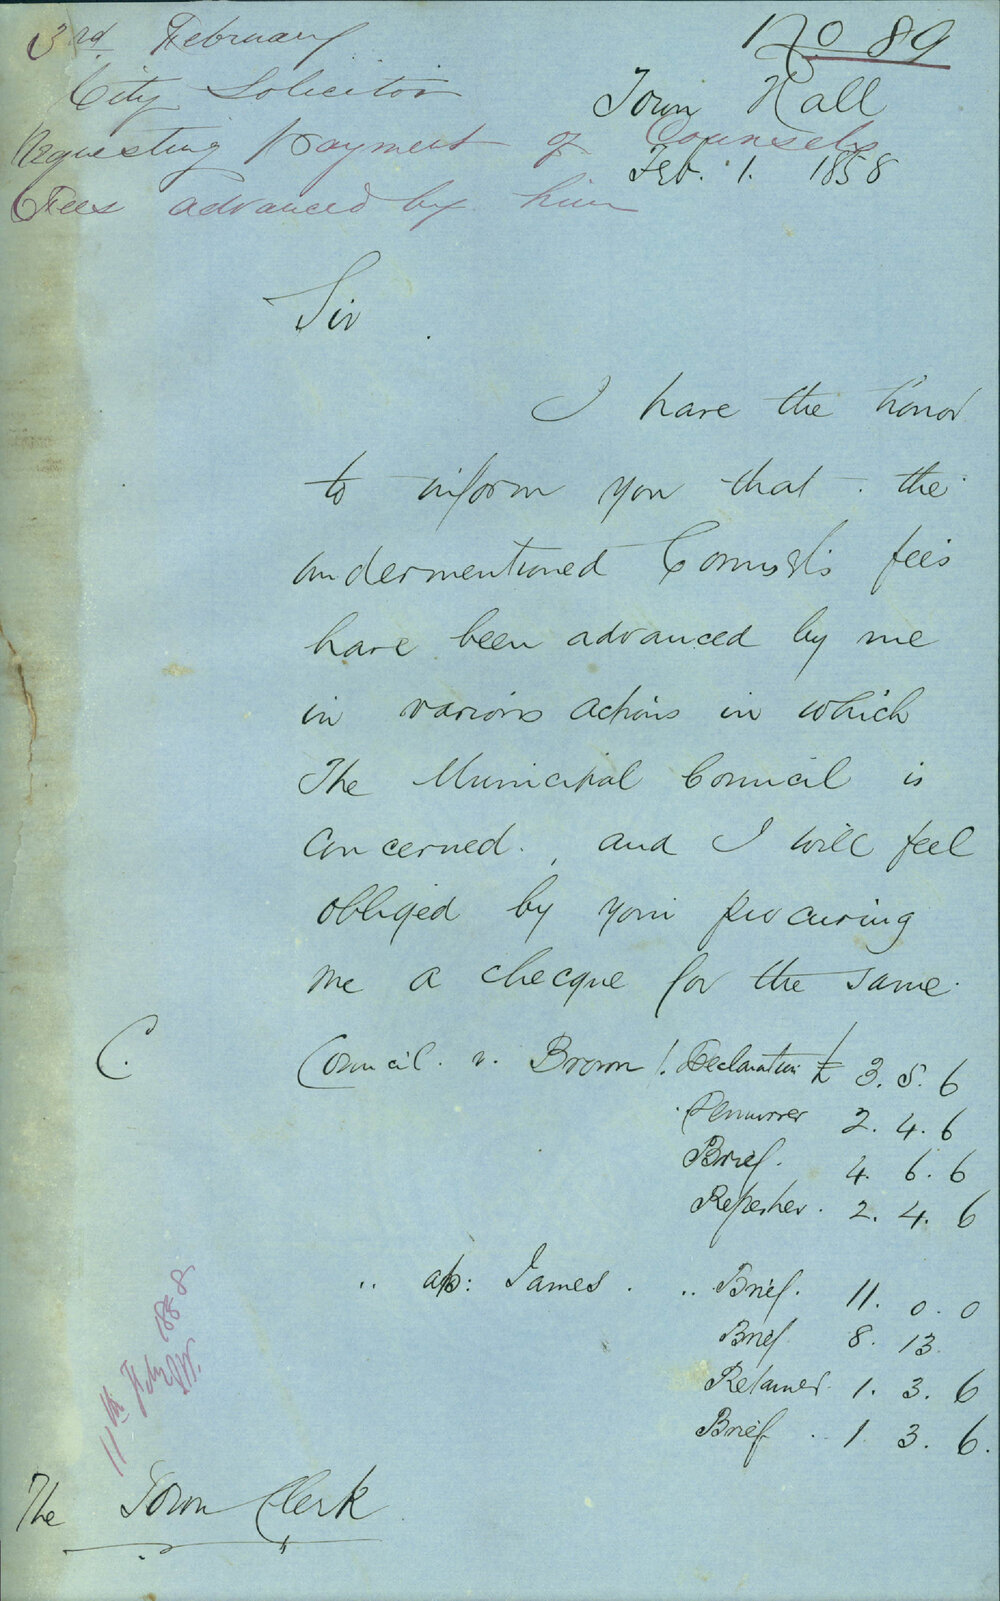 No 89
3rd February
City Solicitor
Requesting payment of Counsels
Fees advanced by him
Town Hall
Feb. 1. 1858
Sir
I have the honor
to inform you that the
undermentioned Counsel's fees
have been advanced by me
in various actions in which
The Municipal Council is
concerned, and I will feel
obliged by your procuring
me a checque for the same.
C.
Council v. Brown Declaration £ 3. 5. 6
Demurrer 2. 4. 6
Brief. 4. 6. 6
Refresher. 2. 4. 6
" ats: James. " Brief. 11. 0. 0
Brief 8. 13
Retainer. 1. 3. 6
Brief 1. 3. 6.
11th Feby 1858
The Town Clerk